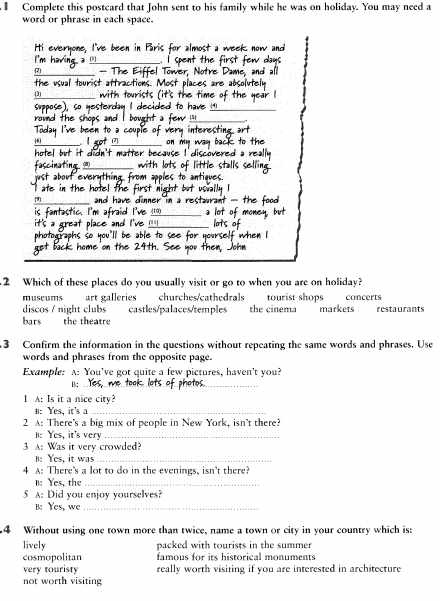 .1 Complete this postcard that John sent to his family while he was on holiday. You may need a
word or phrase in each space.
Hi everyone, I've been in Paris for almost a week now and
I'm having a (1) . I spent the first few days
(2) – The Eiffel Tower, Notre Dame, and all
the usual tourist attractions. Most places are absolutely
(3) with tourists (it's the time of the year I
suppose), so yesterday I decided to have (4)
round the shops and I bought a few (5) .
Today I've been to a couple of very interesting art
(6) . I got (7) on my way back to the
hotel but it didn't matter because I discovered a really
fascinating (8) with lots of little stalls selling
just about everything from apples to antiques.
I ate in the hotel the first night but usually I
(9) and have dinner in a restaurant – the food
is fantastic. I'm afraid I've (10) a lot of money, but
it's a great place and I've (11) lots of
photographs so you'll be able to see for yourself when I
get back home on the 29th. See you then, John
.2 Which of these places do you usually visit or go to when you are on holiday?
museums art galleries churches/cathedrals tourist shops concerts
discos / night clubs castles/palaces/temples the cinema markets restaurants
bars the theatre
.3 Confirm the information in the questions without repeating the same words and phrases. Use
words and phrases from the opposite page.
Example: A: You've got quite a few pictures, haven't you?
B: Yes, we took lots of photos.
1 A: Is it a nice city?
B: Yes, it's a
2 A: There's a big mix of people in New York, isn't there?
B: Yes, it's very
3 A: Was it very crowded?
B: Yes, it was
4 A: There's a lot to do in the evenings, isn't there?
B: Yes, the
5 A: Did you enjoy yourselves?
B: Yes, we
.4 Without using one town more than twice, name a town or city in your country which is:
lively packed with tourists in the summer
cosmopolitan famous for its historical monuments
very touristy really worth visiting if you are interested in architecture
not worth visiting